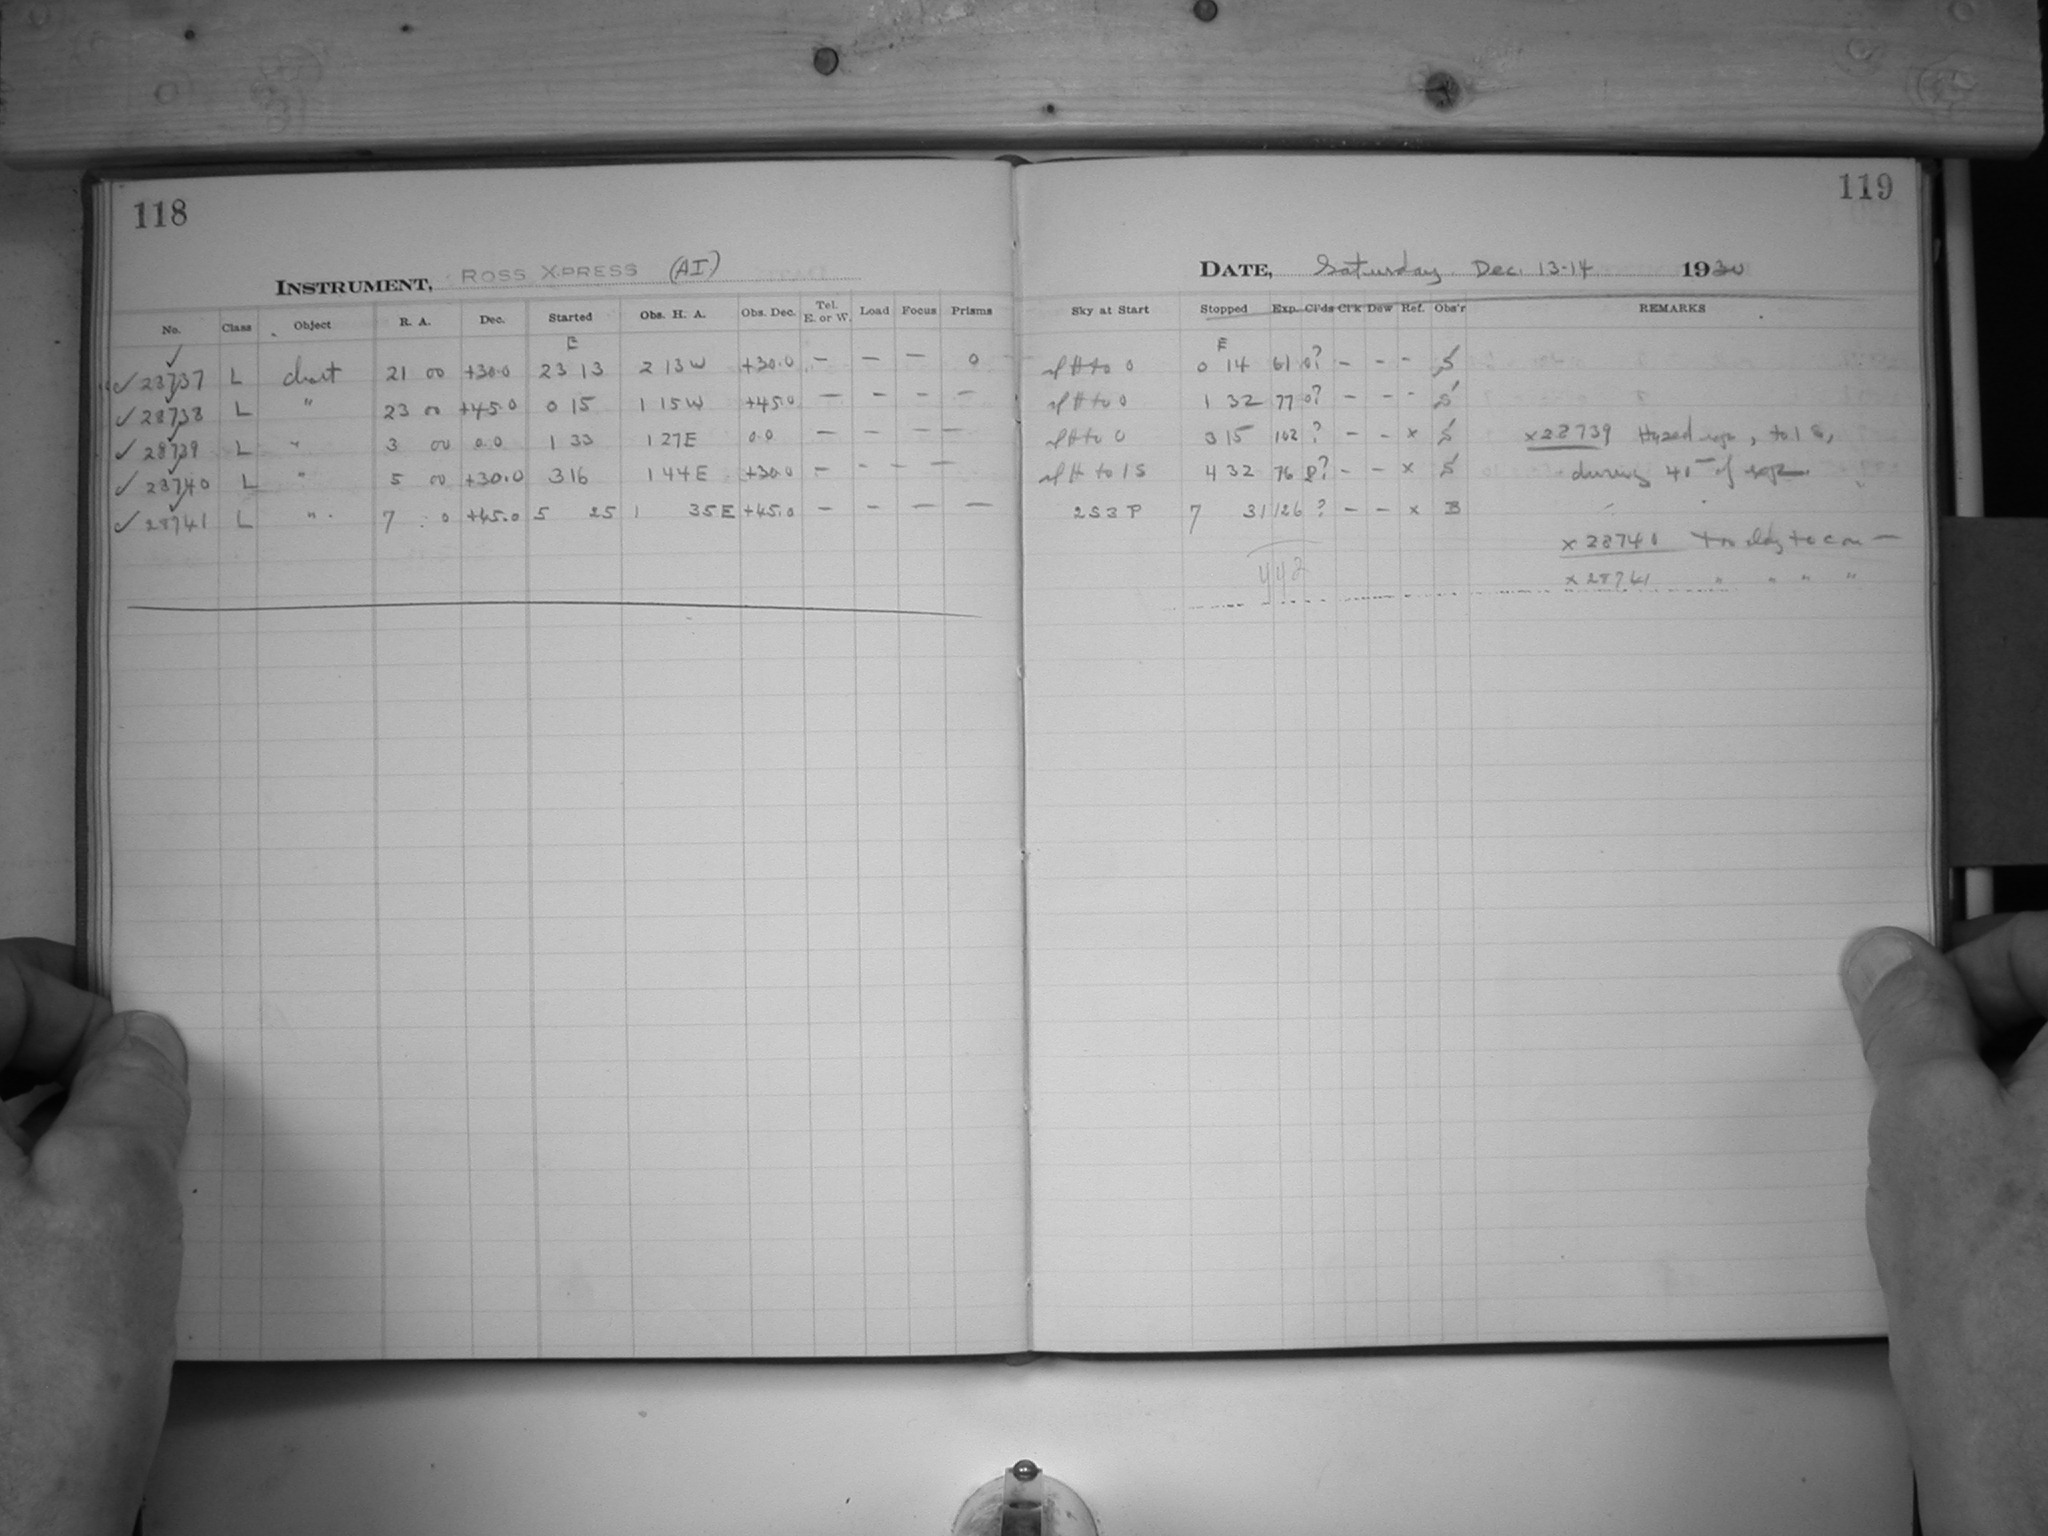 118
INSTRUMENT, ROSS XPRESS (AI)
No. Class Object R. A. Dec. Started Obs. H. A. Obs. Dec. Tel. E. or W. Load Focus Prisms
E
✓ 28737 L chart 21 00 +30.0 23 13 2 13 W +30.0 — — — 0
✓ 28738 L " 23 00 +45.0 0 15 1 15 W +45.0 — — — —
✓ 28739 L " 3 00 0.0 1 33 1 27 E 0.0 — — — —
✓ 28740 L " 5 00 +30.0 3 16 1 44 E +30.0 — — — —
✓ 28741 L " 7 0 +45.0 5 25 1 35 E +45.0 — — — —
119
DATE, Saturday Dec. 13-14 1930
Sky at Start Stopped Exp. Cl'ds Cl'k Dew Ref. Obs'r REMARKS
E
H to 0 0 14 61 0? — — — S
H to 0 1 32 77 0? — — — S
H to 0 3 15 102 ? — — x S x 28739 Hazed up, to 1 S,
H to 1 S 4 32 76 8? — — x S during 40 of exp.
2 S 3 P 7 31 126 ? — — x B
x 28740 Too cldy to con —
x 28741 " " " "
442